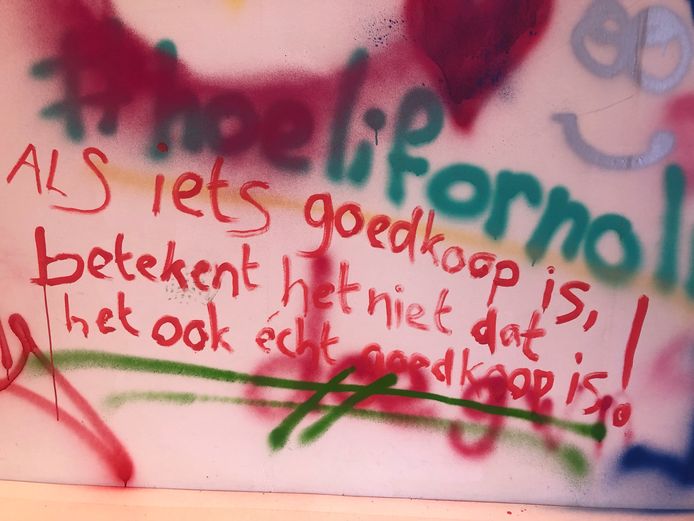 #hoelifornol
ALS iets goedkoop is,
betekent het niet dat
het ook écht goedkoop is!